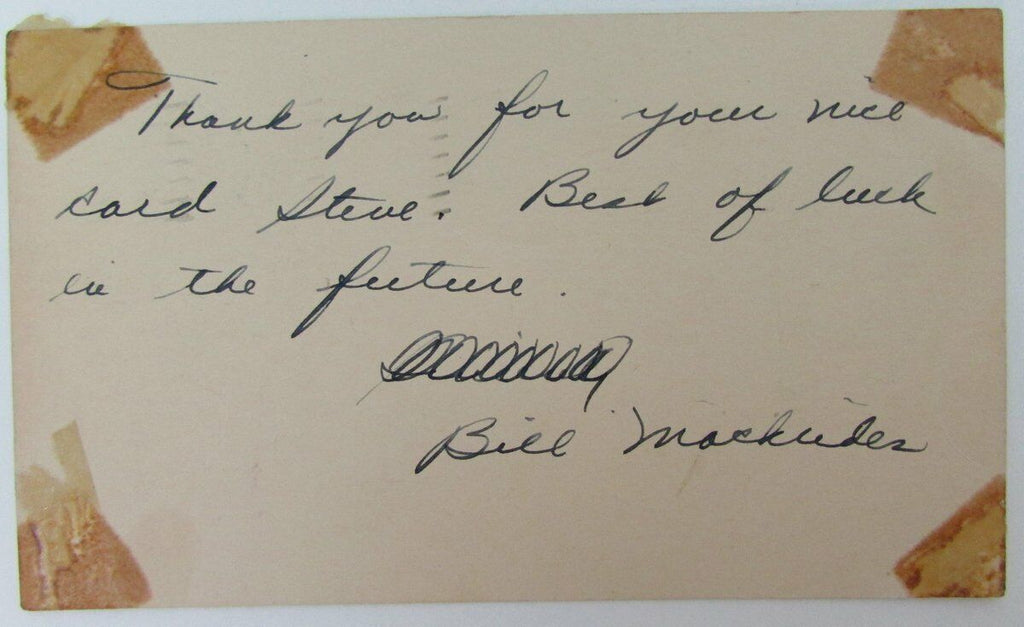 Thank you for your nice
card Steve. Best of luck
in the future.
Bill Mackrides